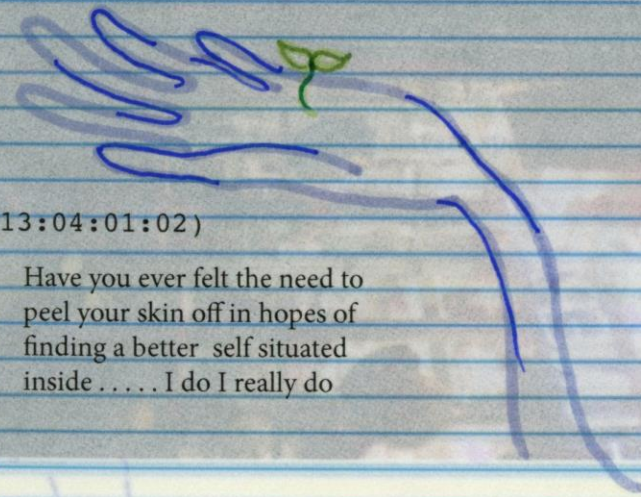 13:04:01:02)
Have you ever felt the need to
peel your skin off in hopes of
finding a better  self situated
inside . . . . . I do I really do